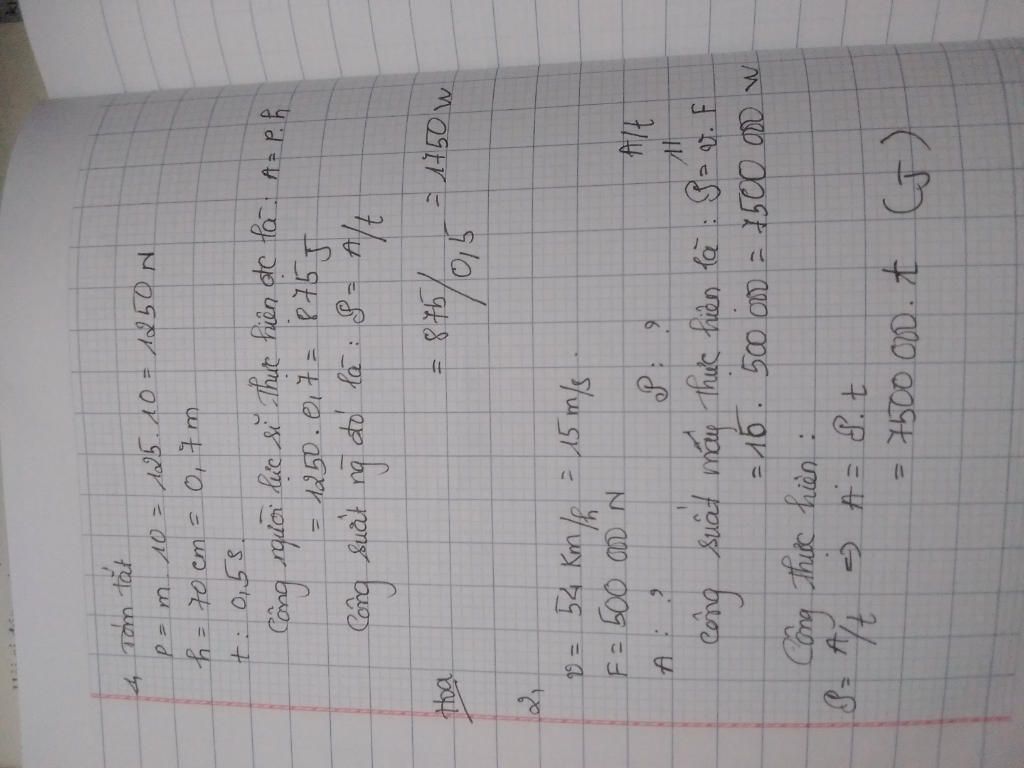 1, Tóm tắt
P = m.10 = 125.10 = 1250 N
h = 70 cm = 0,7 m
t : 0,5s.
Công người lực sĩ thực hiện đc là: A = P.h
= 1250.0,7 = 875 J
Công suất ng đó là: P = A/t
= 875/0,5 = 1750 W
2,
v = 54 Km/h = 15 m/s.
F = 500 000 N
A : ? P : ? A/t
công suất máy thực hiện là: P = v.F
= 15. 500 000 = 7500 000 W
Công thực hiện:
P = A/t => A = P.t
= 7500 000.t (J)